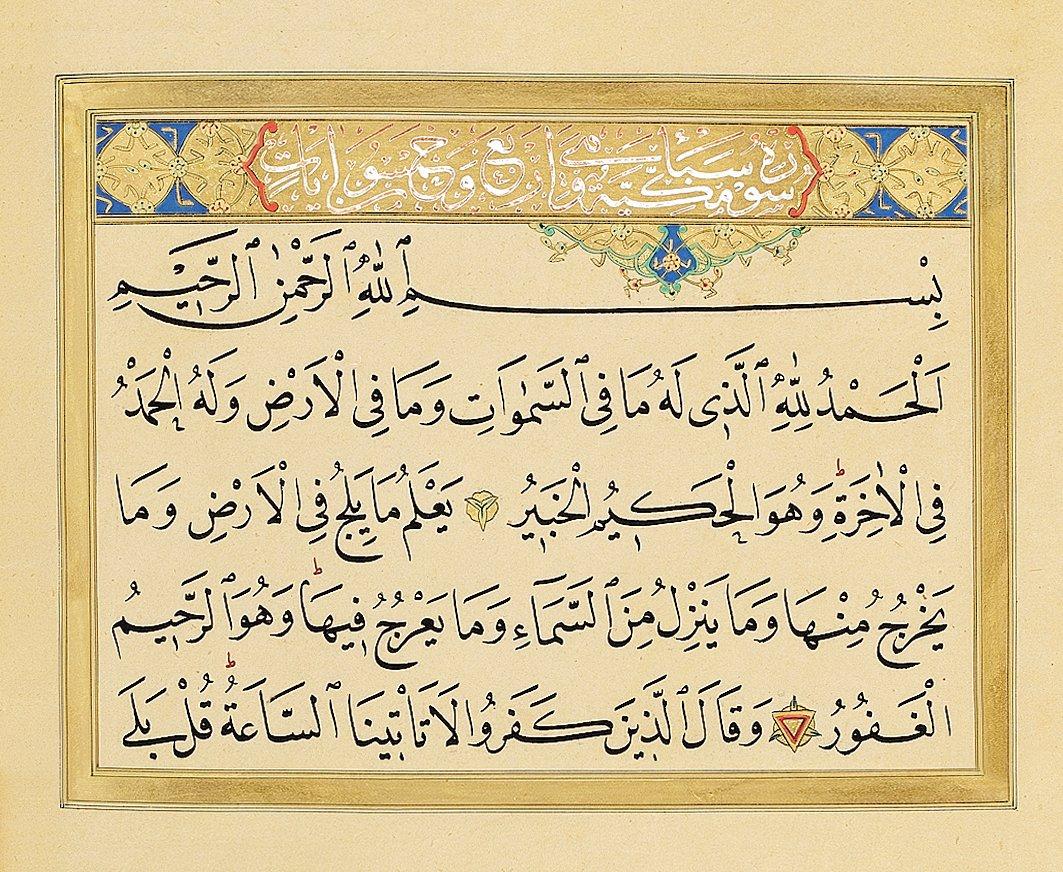 سورة سبأ مكية وهي أربع وخمسون آيات
بِسْمِ ٱللّٰهِ ٱلرَّحْمٰنِ ٱلرَّحِيمِ
اَلْحَمْدُ لِلّٰهِ ٱلَّذِى لَهُ مَا فِى ٱلسَّمٰوَاتِ وَمَا فِى الْاَرْضِ وَلَهُ الْحَمْدُ
فِى الْاٰخِرَةِ ط وَهُوَ الْحَكِيمُ الْخَبِيرُ يَعْلَمُ مَا يَلِجُ فِى الْاَرْضِ وَمَا
يَخْرُجُ مِنْهَا وَمَا يَنْزِلُ مِنَ ٱلسَّمَآءِ وَمَا يَعْرُجُ فِيهَا ط وَهُوَ ٱلرَّحِيمُ
الْغَفُورُ وَقَالَ ٱلَّذِينَ كَفَرُوا لَا تَاْتِينَا ٱلسَّاعَةُ ط قُلْ بَلٰى